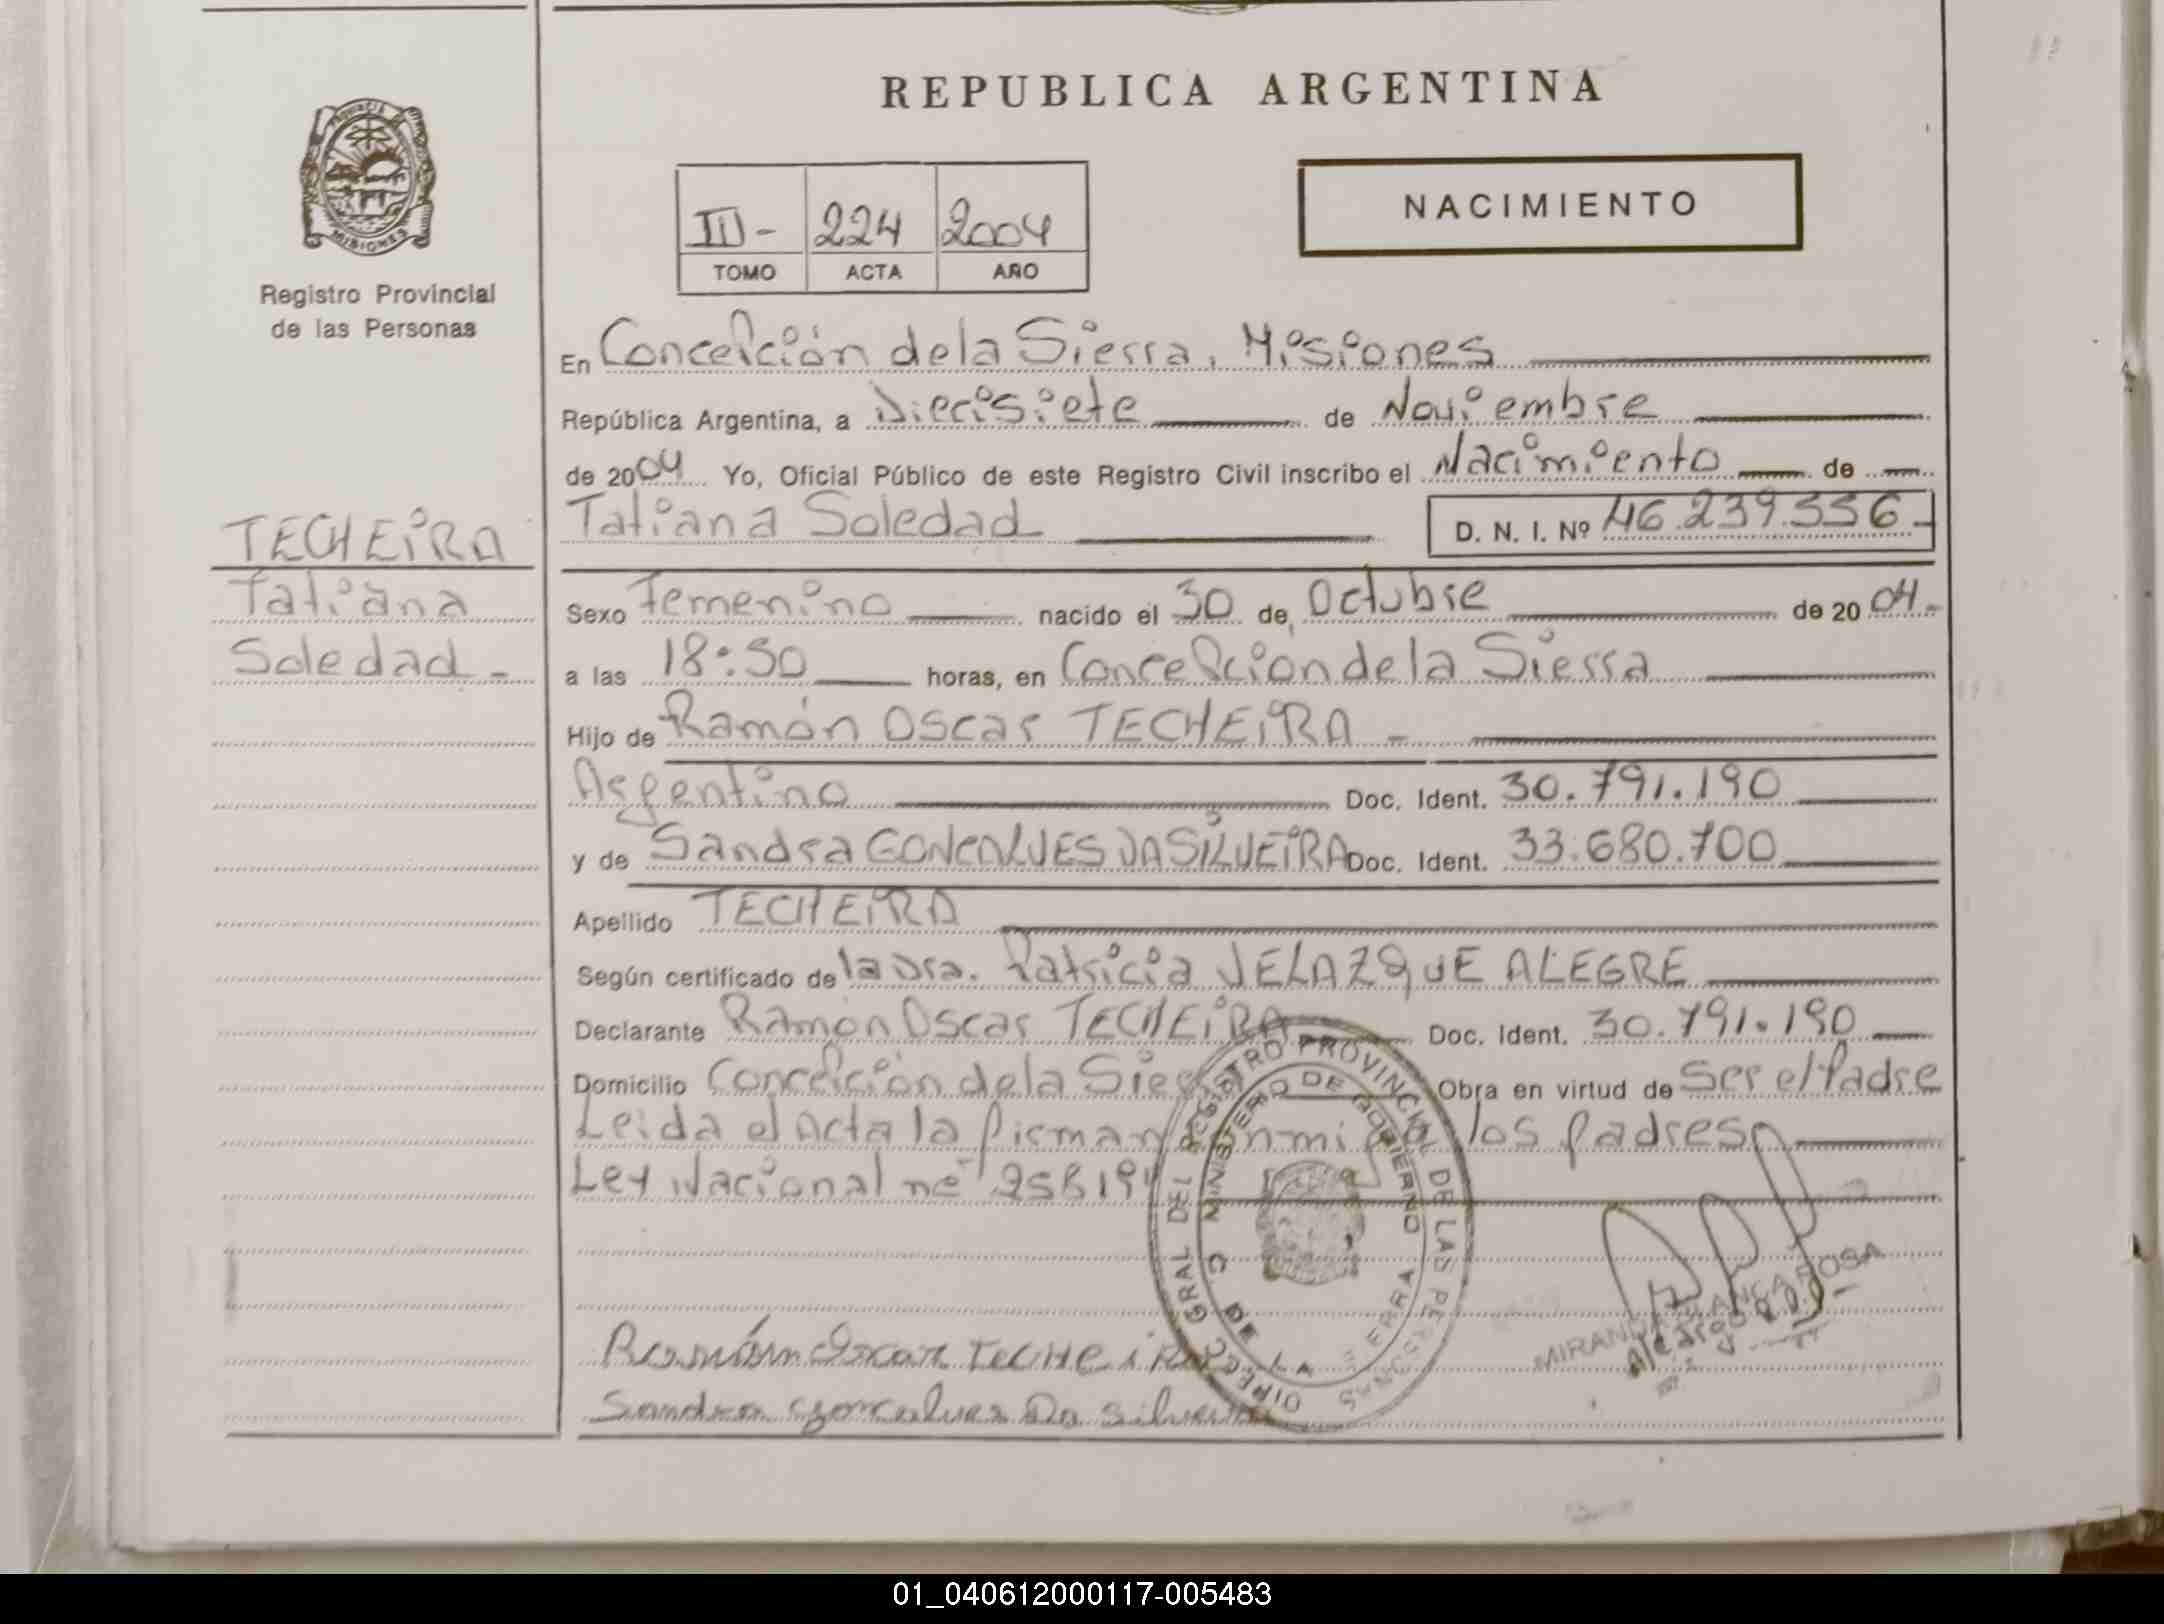 REPUBLICA ARGENTINA
NACIMIENTO
III- 224 2004
TOMO ACTA AÑO
PROVINCIA DE
MISIONES
Registro Provincial
de las Personas
TECHEIRA
Tatiana
Soledad -
En Concepción de la Sierra, Misiones
República Argentina, a Diecisiete de Noviembre
de 2004 Yo, Oficial Público de este Registro Civil inscribo el Nacimiento de
Tatiana Soledad D. N. I. Nº 46.239.556-
Sexo Femenino nacido el 30 de Octubre de 2004-
a las 18:50 horas, en Concepcion de la Sierra
Hijo de Ramón Oscar TECHEIRA -
Argentino Doc. Ident. 30.791.190
y de Sandra GONCALVES DA SILVEIRA Doc. Ident. 33.680.700
Apellido TECHEIRA
Según certificado de la Dra. Patricia VELAZQUE ALEGRE
Declarante Ramón Oscar TECHEIRA Doc. Ident. 30.791.190
Domicilio Concepción de la Sierra Obra en virtud de Ser el Padre
Leida el Acta la firman conmigo los padres
Ley Nacional nº
DIRECC. GRAL DEL REGISTRO PROVINCIAL DE LAS PERSONAS
MINISTERIO DE GOBIERNO
Ramón Oscar TECHEIRA
Sandra Goncalves Da Silveira
MIRANDA BLANCA ROSA